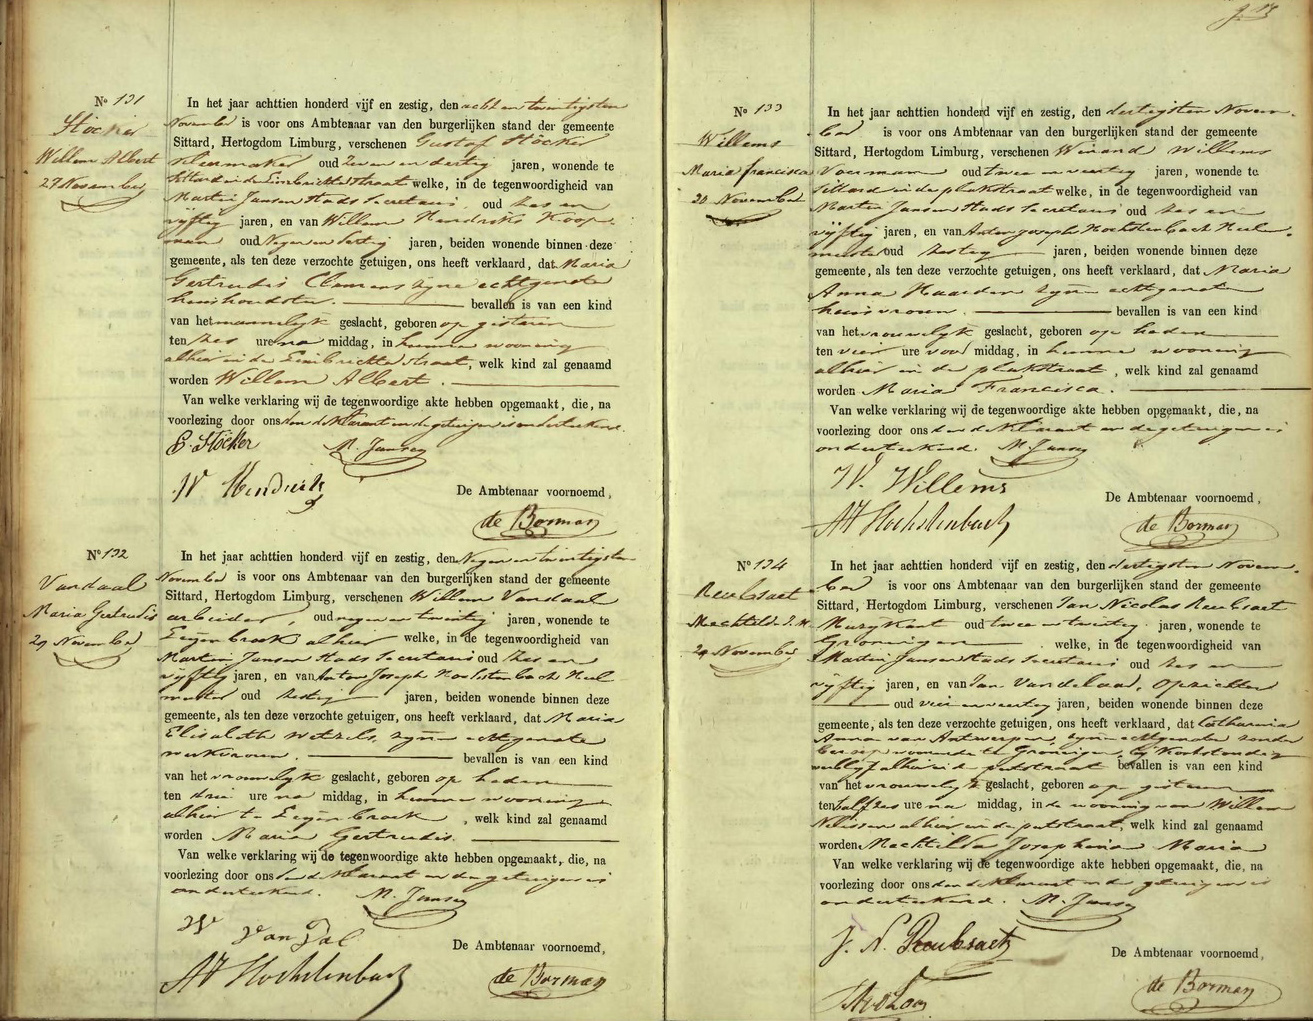 No 131
Stöcker
Willem Albert
27 November
In het jaar achttien honderd vijf en zestig, den acht en twintigsten
November is voor ons Ambtenaar van den burgerlijken stand der gemeente
Sittard, Hertogdom Limburg, verschenen Gustaf Stöcker
oud Zeven en dertig jaren, wonende te
Sittard in de Limbrichterstraat welke, in de tegenwoordigheid van
Martin Jansen Stads Secretaris, oud zes en
vijftig jaren, en van Willem Hendriks Koop-
man oud Negen en dertig jaren, beiden wonende binnen deze
gemeente, als ten deze verzochte getuigen, ons heeft verklaard, dat Maria
Gertrudis Clemens zijne echtgenote
huishoudster. bevallen is van een kind
van het mannelijk geslacht, geboren op gisteren
ten zes ure na middag, in hunne wooning
alhier in de Limbrichterstraat, welk kind zal genaamd
worden Willem Albert.
Van welke verklaring wij de tegenwoordige akte hebben opgemaakt, die, na
voorlezing door ons den deklarant en de getuigen is onderteekend.
G. Stöcker M. Jansen
W Hendriks
De Ambtenaar voornoemd,
de Borman
No 132
Vandaal
Maria Gertrudis
29 November
In het jaar achttien honderd vijf en zestig, den Negen en twintigsten
November is voor ons Ambtenaar van den burgerlijken stand der gemeente
Sittard, Hertogdom Limburg, verschenen Willem Vandaal
arbeider, oud negen en twintig jaren, wonende te
alhier welke, in de tegenwoordigheid van
Martin Jansen Stads Secretaris oud zes en
vijftig jaren, en van Anton Joseph Hochstenbach Heel-
meester oud zestig jaren, beiden wonende binnen deze
gemeente, als ten deze verzochte getuigen, ons heeft verklaard, dat Maria
Elisabeth Wetzels, zijne echtgenote
werkvrouw. bevallen is van een kind
van het vrouwelijk geslacht, geboren op heden
ten drie ure na middag, in hunne wooning
alhier te, welk kind zal genaamd
worden Maria Gertrudis.
Van welke verklaring wij de tegenwoordige akte hebben opgemaakt, die, na
voorlezing door ons den deklarant en de getuigen is
onderteekend. M. Jansen
W van Dal
AJ Hochstenbach
De Ambtenaar voornoemd,
de Borman
No 133
Willems
Maria francisca
30 November
In het jaar achttien honderd vijf en zestig, den dertigsten Novem-
ber is voor ons Ambtenaar van den burgerlijken stand der gemeente
Sittard, Hertogdom Limburg, verschenen Winand Willems
Voerman oud twee en veertig jaren, wonende te
Sittard in de plakstraat welke, in de tegenwoordigheid van
Martin Jansen Stads Secretaris oud zes en
vijftig jaren, en van Anton Joseph Hochstenbach Heel-
meester oud zestig jaren, beiden wonende binnen deze
gemeente, als ten deze verzochte getuigen, ons heeft verklaard, dat Maria
Anna Haarden zijne echtgenote
huisvrouw. bevallen is van een kind
van het vrouwelijk geslacht, geboren op heden
ten vier ure voor middag, in hunne wooning
alhier in de plakstraat, welk kind zal genaamd
worden Maria Francisca.
Van welke verklaring wij de tegenwoordige akte hebben opgemaakt, die, na
voorlezing door ons den deklarant en de getuigen is
onderteekend. M Jansen
W. Willems
AJ Hochstenbach
De Ambtenaar voornoemd,
de Borman
No 134
Reubsaet
Mechtilda J. M.
29 November
In het jaar achttien honderd vijf en zestig, den dertigsten Novem-
ber is voor ons Ambtenaar van den burgerlijken stand der gemeente
Sittard, Hertogdom Limburg, verschenen Jan Nicolas Reubsaet
Muzykant oud twee en twintig jaren, wonende te
Groningen welke, in de tegenwoordigheid van
Martin Jansen Stads Secretaris oud zes en
vijftig jaren, en van Jan Vandeloo, Opzichter
oud vier en veertig jaren, beiden wonende binnen deze
gemeente, als ten deze verzochte getuigen, ons heeft verklaard, dat Catharina
Anna van Antwerpen, zijne echtgenote zonder
beroep wonende te Groningen, bij kortstondig
verblyf alhier in de putstraat bevallen is van een kind
van het vrouwelijk geslacht, geboren op gisteren
ten half zes ure na middag, in de wooning van Willem
Nelissen alhier in de putstraat, welk kind zal genaamd
worden Mechtilda Josephina Maria
Van welke verklaring wij de tegenwoordige akte hebben opgemaakt, die, na
voorlezing door ons den deklarant en de getuigen is
onderteekend. M. Jansen
J. N. Reubsaet
De Ambtenaar voornoemd,
de Borman